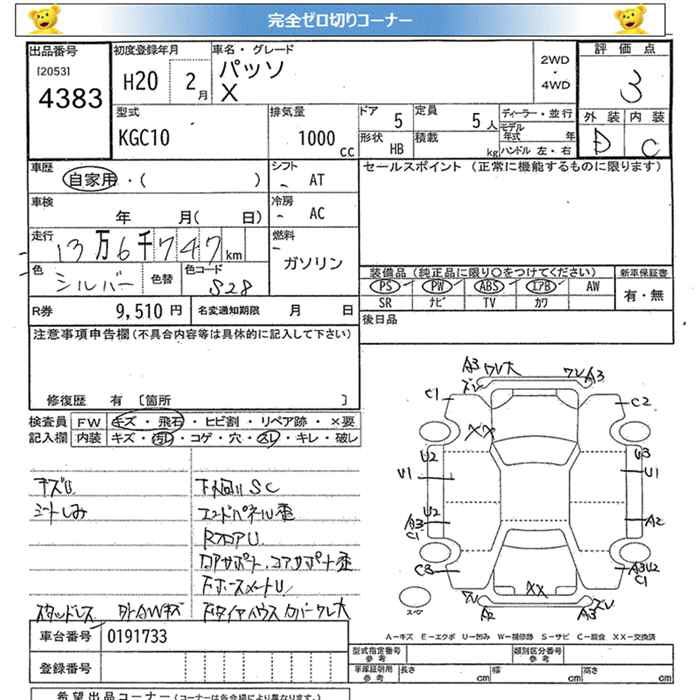 完全ゼロ切りコーナー
出品番号 [2053] 4383
初度登録年月 H20 2月
車名・グレード パッソ X
2WD ・ 4WD
評価点 3
型式 KGC10
排気量 1000 cc
ドア 5
定員 5人
形状 HB
積載 kg
ディーラー・並行
モデル年式 年
ハンドル 左・右
外装 D
内装 C
車歴 自家用・( )
シフト - AT
セールスポイント (正常に機能するものに限ります)
車検 年 月( 日)
冷房 - AC
走行 13万6千747km
燃料 - ガソリン
色 シルバー
色替
色コード S28
装備品(純正品に限り〇をつけてください)
新車保証書
PS PW ABS エアB AW
SR ナビ TV カワ
有・無
R券 9,510円
名変通知期限 月 日
後日品
注意事項申告欄(不具合内容等は具体的に記入して下さい)
修復歴 有 [箇所 ]
検査員 FW キズ・飛石・ヒビ割・リペア跡・×要
記入欄 内装 キズ・汚レ・コゲ・穴・スレ・キレ・破レ
キズU
シートしみ
エンドパネル歪
RフロアU
スタッドレス
A3 ワレ大 ワレ A3
C1 C2
XX
U2 U3
U1 U1
U2
A3 A2
C1
C3 A3U2
C1
XX
A2 A3
スペア
A－キズ E－エクボ U－凹み W－補修跡 S－サビ C－腐食 XX－交換済
車台番号 0191733
登録番号
型式指定番号 参考
類別区分番号 参考
車庫証明用 参考 長さ cm 幅 cm 高さ cm
希望出品コーナー